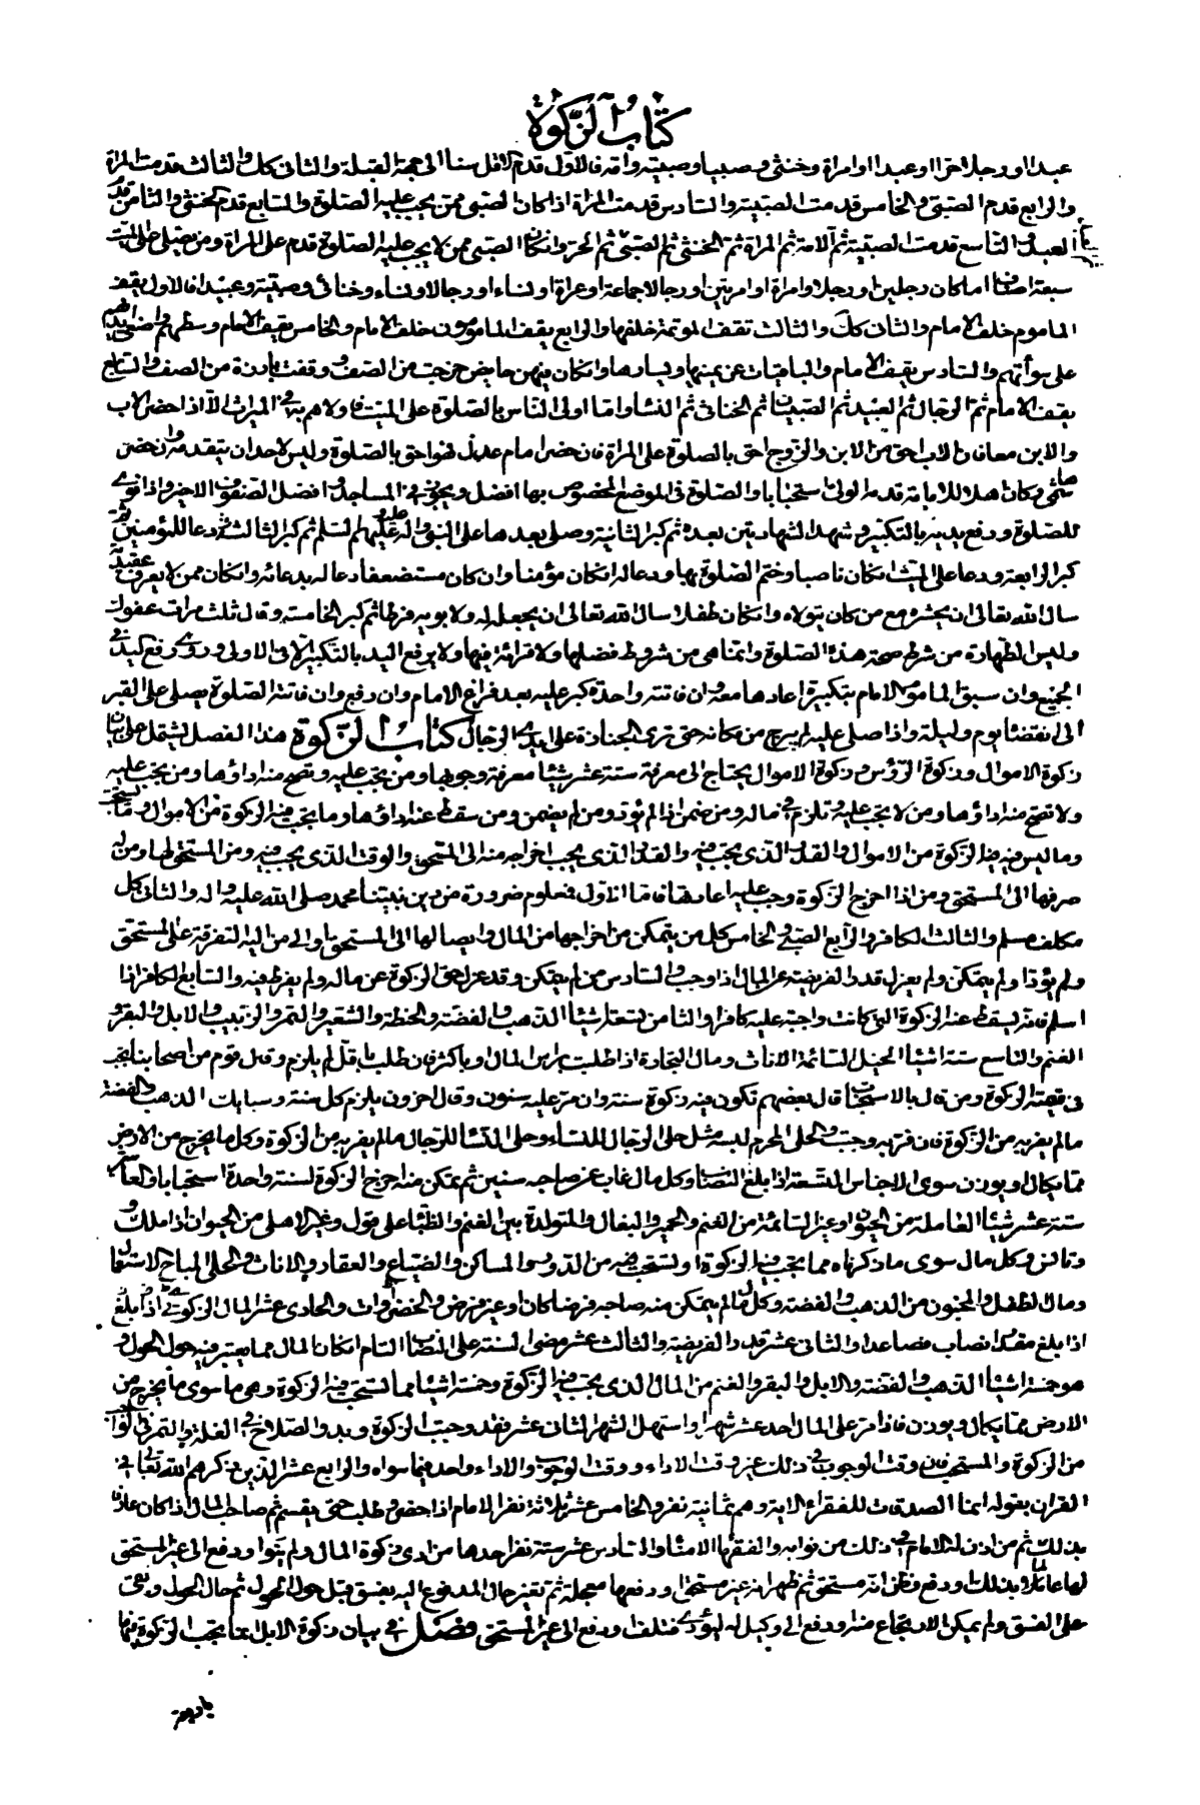 كتاب الزكوة
عبدا او رجلا حرا او عبدا او امراة وخنثى وصبيا وصبية وامة فالاول قدم الاقل سنا الى جهة القبلة والثانى كك والثالث قدمت المراة
والرابع قدم الصبى والخامس قدمت الصبية والسادس قدمت المراة اذا كان الصبى ممن يجب عليه الصلوة والسابع قدم الخنثى والثامن قدم
العبد والتاسع قدمت الصبية ثم الامة ثم المراة ثم الخنثى ثم الصبى ثم الحر وان كان الصبى ممن لا يجب عليه الصلوة قدم على المراة ومن يصلى على الميت
سبعة اصناف اما كان رجلين او رجلا وامراة او امرتين او رجالا جماعة او عراة او نساء او رجالا ونساء وخناثى وصبية وعبيدا فالاول يقف
الماموم خلف الامام والثانى كك والثالث تقف الموتمة خلفها والرابع يقف المامومون خلف الامام والخامس يقف الامام وسطهم واضعى ايديهم
على سوأتهم والسادس يقف الامام والباقيات عن يمينها ويسارها وان كان فيهن حايض خرجت من الصف ووقفت بارزة من الصف والسابع
يقف الامام ثم الرجال ثم العبيد ثم الصبيان ثم الخناثى ثم النساء واما اولى الناس بالصلوة على الميت فاولاهم به فى الميراث الا اذا حضر الاب
والابن معا فان الاب احق من الابن والزوج احق بالصلوة على المراة فان حضر امام عدل فهو احق بالصلوة وليس لاحد ان يتقدمه وان حضر
هاشمى وكان اهلا للامامة قدمه الولى استحبابا والصلوة فى الموضع المخصوص بها افضل ويجوز فى المساجد وافضل الصفوف الاخير واذا نوى
للصلوة ورفع يديه بالتكبير وشهد الشهادتين بعده ثم كبر الثانية وصلى بعدها على النبى واله عليهم السلم ثم كبر الثالثة ودعا للمؤمنين ثم
كبر الرابعة ودعا على الميت ان كان ناصبا وختم الصلوة بها ودعا له ان كان مؤمنا وان كان مستضعفا دعا له بدعائه وان كان ممن لا يعرف عقيدته
سال الله تعالى ان يحشره مع من كان يتولاه وان كان طفلا سال الله تعالى ان يجعله له ولابويه فرطا ثم كبر الخامسة وقال ثلث مرات عفوك
وليس الطهارة من شرط صحة هذه الصلوة وانما هى من شروط فضلها ولا قرائة فيها ولا يرفع اليد بالتكبير الا فى الاولى وروى رفع اليد فى
الجميع وان سبق الماموم الامام بتكبيرة اعادها معه وان فاتته واحدة كبر عليه بعد فراغ الامام وان رفع وان فاتته الصلوة يصلى على القبر
الى انقضاء يوم وليلة واذا صلى عليه لم يبرح من مكانه حتى ترى الجنازة على ايدى الرجال كتاب الزكوة هذا الفصل يشتمل على بيان
زكوة الاموال وزكوة الرؤس وزكوة الاموال يحتاج الى معرفة ستة عشر شيئا معرفة وجوبها ومن يجب عليه وتصح منه اداؤها ومن يجب عليه
ولا تصح منه اداؤها ومن لا يجب عليه وتلزم فى ماله ومن ضمن اذا لم يؤد ومن لم يضمن ومن سقط عنه اداؤها وما يجب فيه الزكوة من الاموال وما يستحب
وما ليس فيه الزكوة من الاموال والقدر الذى يجب فيه والقدر الذى يجب اخراجه منه الى المستحق والوقت الذى يجب فيه ومن المستحق لها ومن له
صرفها الى المستحق ومن اذا اخرج الزكوة وجب عليه اعادتها فاما الاول فمعلوم ضرورة من دين نبينا محمد صلى الله عليه واله والثانى كل
مكلف مسلم والثالث الكافر والرابع الصبى والخامس كل من يتمكن من اخراجها من المال وايصالها الى المستحق او الى من اليه التفرقة على المستحق
ولم يؤد او لم يتمكن ولم يعزل قدر الفريضة عن المال اذا وجب والسادس من لم يتمكن وقد عزل حق الزكوة عن ماله ولم يفرط فيه والسابع الكافر اذا
اسلم فانه يسقط عنه الزكوة التى كانت واجبة عليه كافرا والثامن تسعة اشياء الذهب والفضة والحنطة والشعير والتمر والزبيب والابل والبقر و
الغنم والتاسع ستة اشياء الخيل السائمة الاناث ومال التجارة اذا طلبت براس المال او باكثر فان طلب باقل لم يلزم وقال قوم من اصحابنا يجب
فى قيمته الزكوة ومن قال بالاستحباب قال بعضهم تكون فيه زكوة سنة وان مر عليه سنون وقال اخرون يلزم كل سنة وسبايك الذهب والفضة
ما لم يفر به من الزكوة فان فر به وجبت والحلى المحرم لبسه مثل حلى الرجال للنساء وحلى النساء للرجال ما لم يفر به من الزكوة وكل ما يخرج من الارض
مما يكال او يوزن سوى الاجناس التسعة اذا بلغ النصاب وكل مال غاب عن صاحبه سنين ثم تمكن منه اخرج الزكوة لسنة واحدة استحبابا والعاشر
ستة عشر شيئا العاملة من الحيوان وغير السائمة من الغنم والحمير والبغال والمتولدة بين الغنم والظباء على قول وغير الاهلى من الحيوان اذا ملك و
توانس وكل مال سوى ما ذكرناه مما يجب فيه الزكوة او يستحب فيه من الدور والمساكن والضياع والعقار والاثاث والحلى المباح لاستعمال
ومال الطفل والمجنون من الذهب والفضة وكل مال لم يتمكن منه صاحبه قرضا كان او غير قرض والخضراوات والحادى عشر المال الزكوى اذا بلغ
اذا بلغ مقدار نصاب فصاعدا والثانى عشر قدر الفريضة والثالث عشر مضى السنة على النصاب التام ان كان المال مما يعتبر فيه حول الحول و
هو خمسة اشياء الذهب والفضة والابل والبقر والغنم من المال الذى يجب فيه الزكوة وخمسة اشياء مما تستحب فيه الزكوة وهى ما سوى ما يخرج من
الارض مما يكال ويوزن فاذا مر على المال احد عشر شهرا واستهل الشهر الثانى عشر فقد وجبت الزكوة وبدو الصلاح فى الغلة والتمر فى
من الزكوة والمستحب فان وقت الوجوب فى ذلك غير وقت الاداء ووقت الوجوب والاداء واحد فيما سواه والرابع عشر الذين ذكرهم الله تعالى فى
القران بقوله انما الصدقات للفقراء الاية وهم ثمانية نفر والخامس عشر ثلاثة نفر الامام اذا حضر وطلب حتى يقسم ثم صاحب المال اذا كان عارفا
بذلك ثم من اذن له الامام فى ذلك من نوابه والفقهاء الامناء والسادس عشر ستة نفر احدها من ادى زكوة المال ولم ينوا ودفع الى غير المستحق
لها عالما بذلك او دفع وظن انه مستحق ثم ظهر انه غير مستحق او دفعها معجلة ثم تغير حال المدفوع اليه بفسق قبل حول الحول ثم حال الحول وبقى
على الفسق ولم يمكن الارتجاع منه او دفع الى وكيل له ليؤدى فتلف او دفع الى غير المستحق فصل فى بيان زكوة الابل انما يجب الزكوة فيها